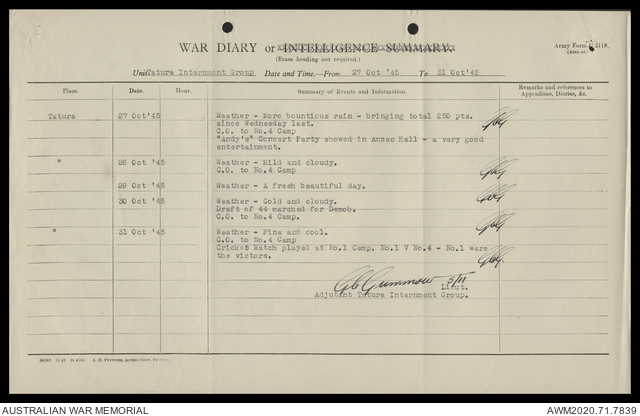 WAR DIARY or INTELLIGENCE SUMMARY.
(Erase heading not required.)
Army Form C.2118.
Unit Tatura Internment Group Date and Time.—From: 27 Oct '45 To 31 Oct'45
Place. Date. Hour. Summary of Events and Information. Remarks and references to
Appendices, Diaries, &c.
Tatura 27 Oct'45 Weather - More bounticus rain - bringing total 250 pts.
since Wednesday last.
C.O. to No.4 Camp
"Andy's" Concert Party showed in Anzac Hall - a very good
entertainment.
" 28 Oct '45 Weather - Mild and cloudy.
C.O. to No.4 Camp
29 Oct '45 Weather - A fresh beautiful day.
30 Oct '45 Weather - Cold and cloudy.
Draft of 44 marched for Demob.
C.O. to No.4 Camp.
" 31 Oct '45 Weather - Fine and cool.
C.O. to No.4 Camp
Cricket Match played at No.1 Camp. No.1 V No.4 - No.1 were
the victors.
Gummow 5/11
Lieut.
Adjutant Tatura Internment Group.
AUSTRALIAN WAR MEMORIAL
AWM2020.71.7839